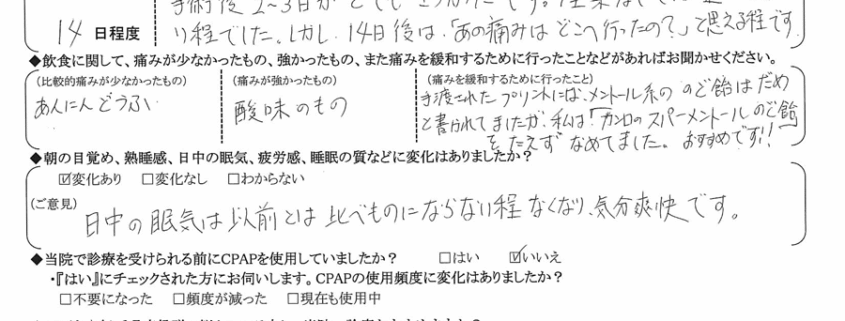 手術後2~3日が
14 日程度
り程でした。しかし、14日後は、「あの痛みはどこへ行ったの?」と思える程です
◆飲食に関して、痛みが少なかったもの、強かったもの、また痛みを緩和するために行ったことなどがあればお聞かせください。
(比較的痛みが少なかったもの)
あんにんどうふ
(痛みが強かったもの)
酸味のもの
(痛みを緩和するために行ったこと)
手渡されたプリントには、メントール系ののど飴はだめ
と書かれてましたが、私は「カンロのスパーメントールのど飴」
をたえずなめてました。おすすめです!!
◆朝の目覚め、熟睡感、日中の眠気、疲労感、睡眠の質などに変化はありましたか?
☑変化あり □変化なし □わからない
(ご意見)
日中の眠気は以前とは比べものにならない程なくなり、気分爽快です。
◆当院で診療を受けられる前にCPAPを使用していましたか? □はい ☑いいえ
・『はい』にチェックされた方にお伺いします。CPAPの使用頻度に変化はありましたか?
□不要になった □頻度が減った □現在も使用中